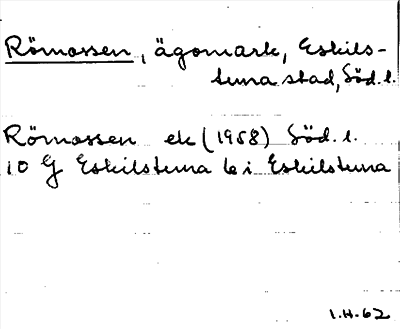 Römossen, ägomark, Eskils-
tuna stad, Söd. l.
Römossen ek (1958) Söd. l.
10 G Eskilstuna 6 i Eskilstuna
1.H.62